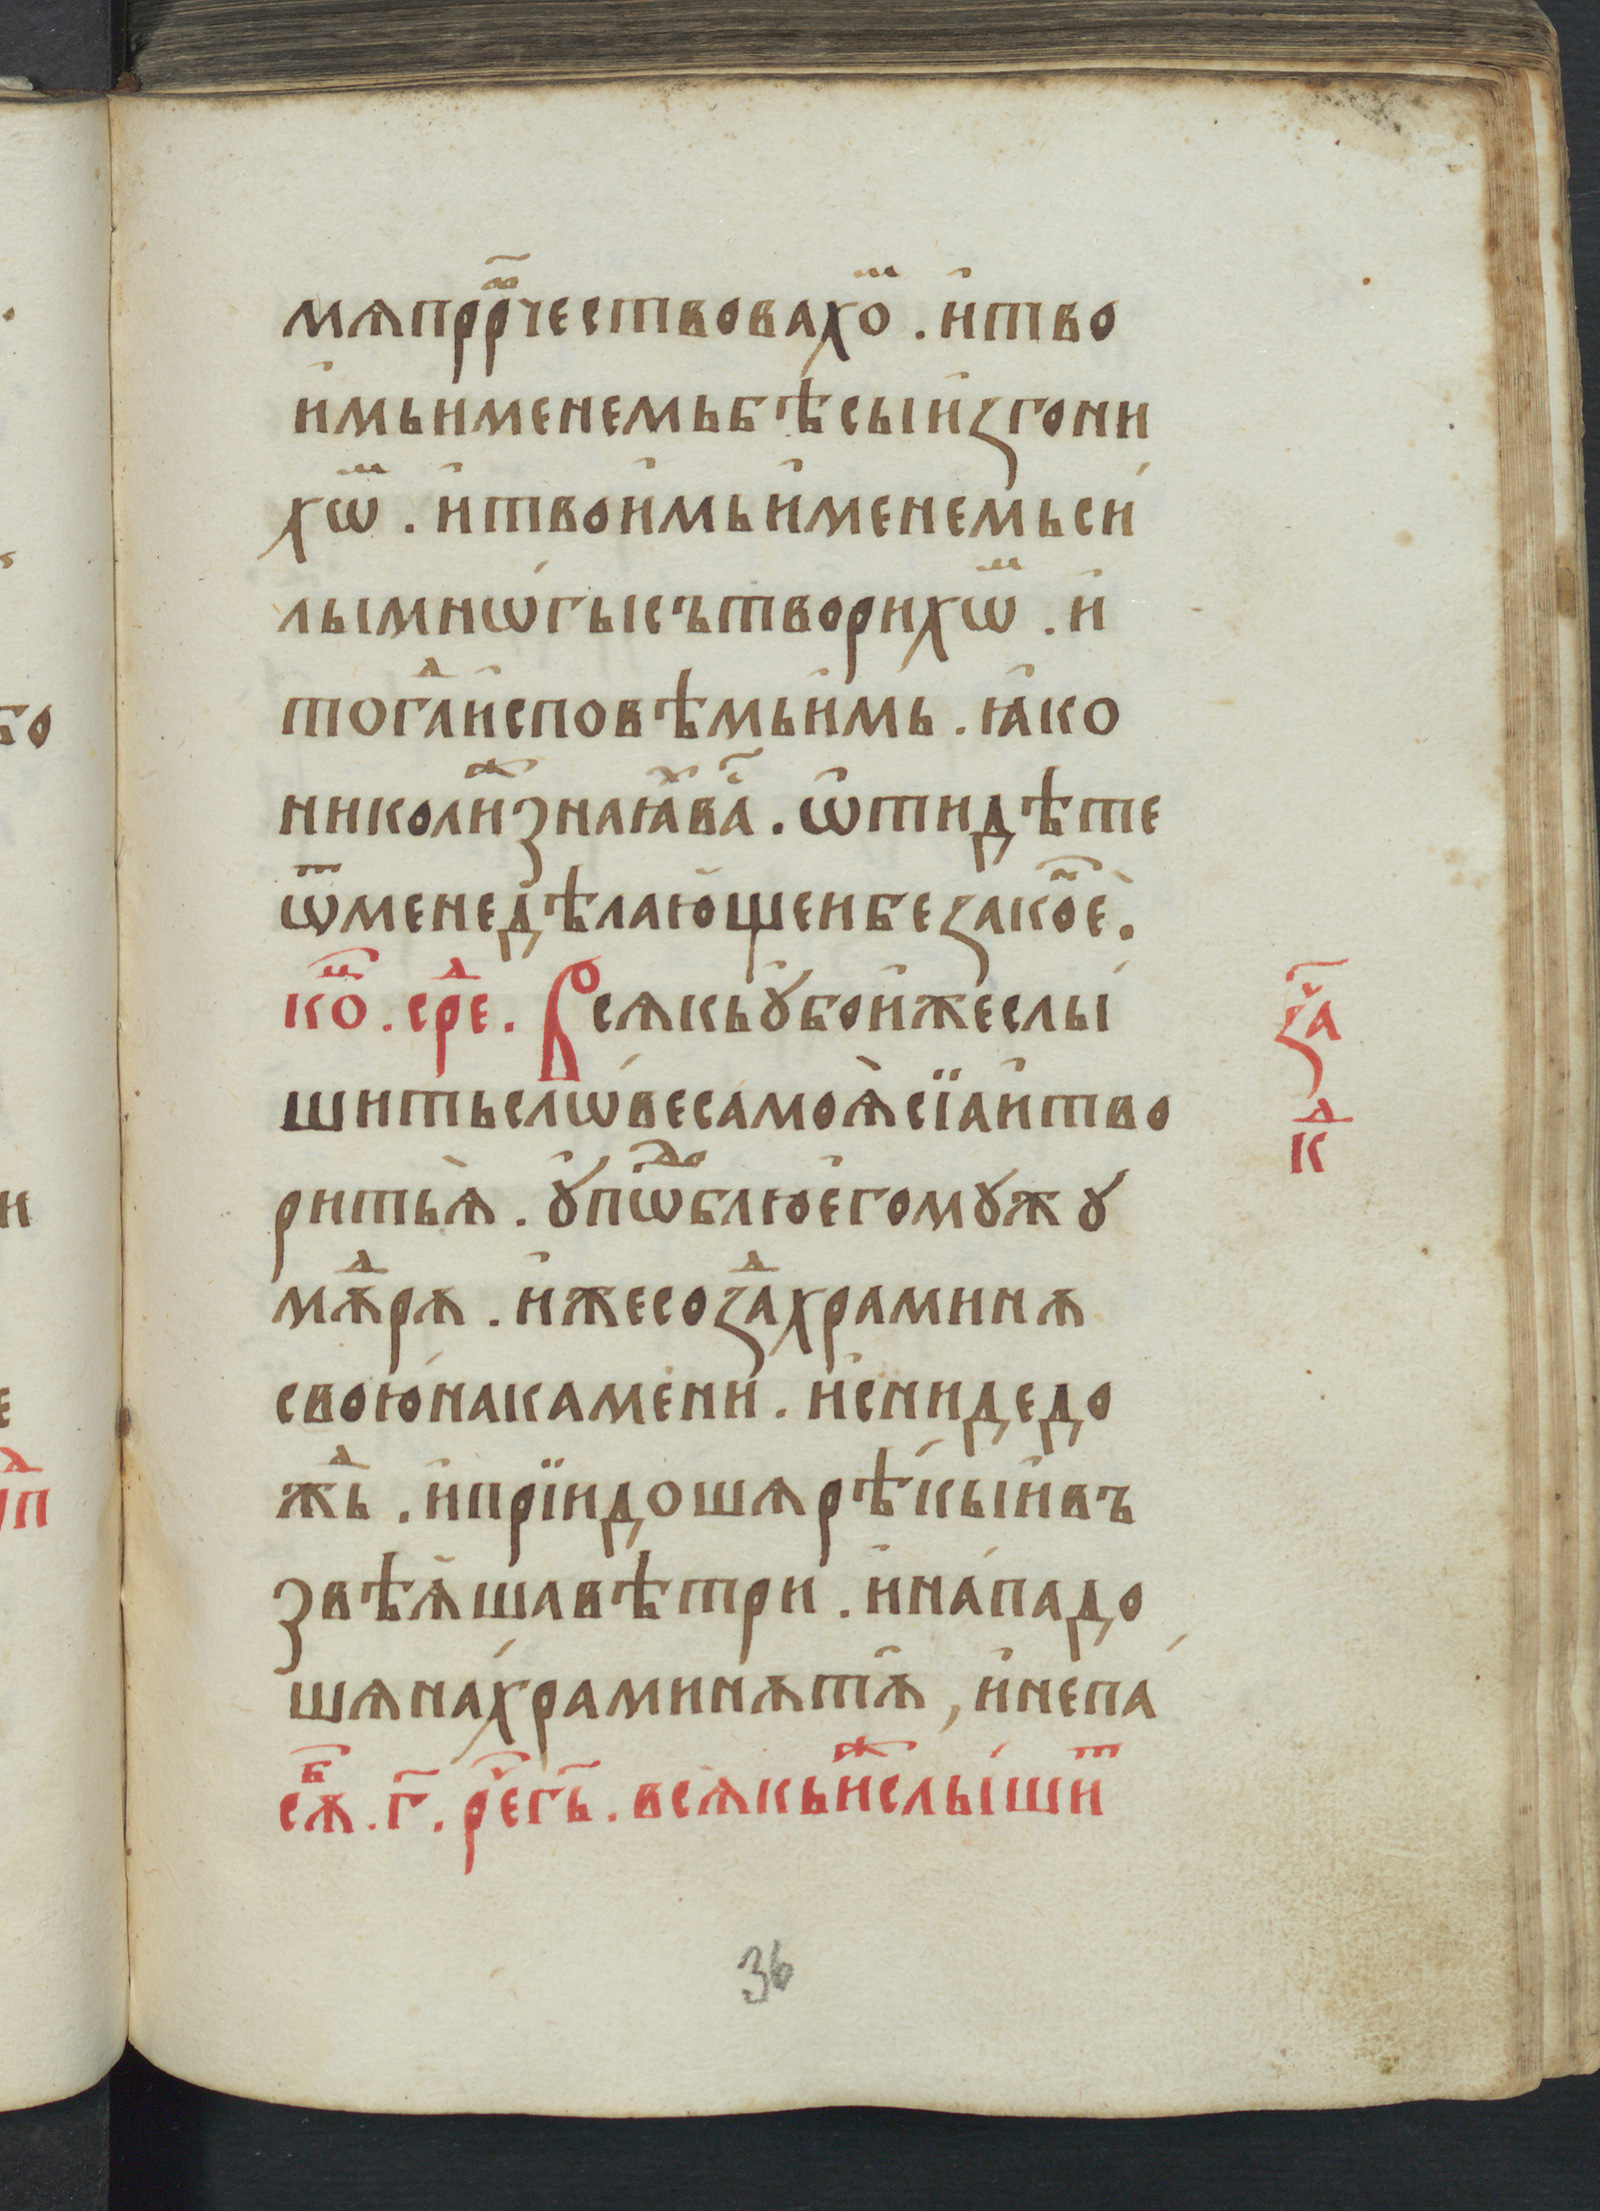 мѧпррⷪ҇чествовахоⷨ . и҆ тво
имьименемьбѣсыи҆ꙁгони
хѡⷨ . и҆твои҆мьи҆менемьси́
лымнѡ́гысътворихѡⷨ . и҆
тогⷣаи҆сповѣмьи҆мь . ꙗ҆ко
николиⷤзнаꙗⷯва҃ . ѿтидѣте
ѿменедѣлающеибеꙁакоⷩ҇е .
коⷰ҇ . среⷣ . Всѧкьꙋ҆бои҆жеслы́
шитьслѡ́весамоѧ҆сїаи҆тво
ритьѧ̀ . ꙋ҆пѡⷣблюе҆гомꙋжꙋ
мѫⷣрѫ . и҆жесоꙁⷣахраминѫ
своюнакамени . и҆снидедо
жⷣь . и҆прїидошѧрѣ́кыи҆въ
звѣѧ҆шавѣтри . и҆на́падо
шѧна́храминѫтѫ҆ , и҆непа́
сѫⷠ҇ . г҃ . рⷱ҇егь҃ . всѧкьиⷤслы́шиⷮ
ꙁаⷱ҇
кⷣ
36
бо
и
е
пⷣ